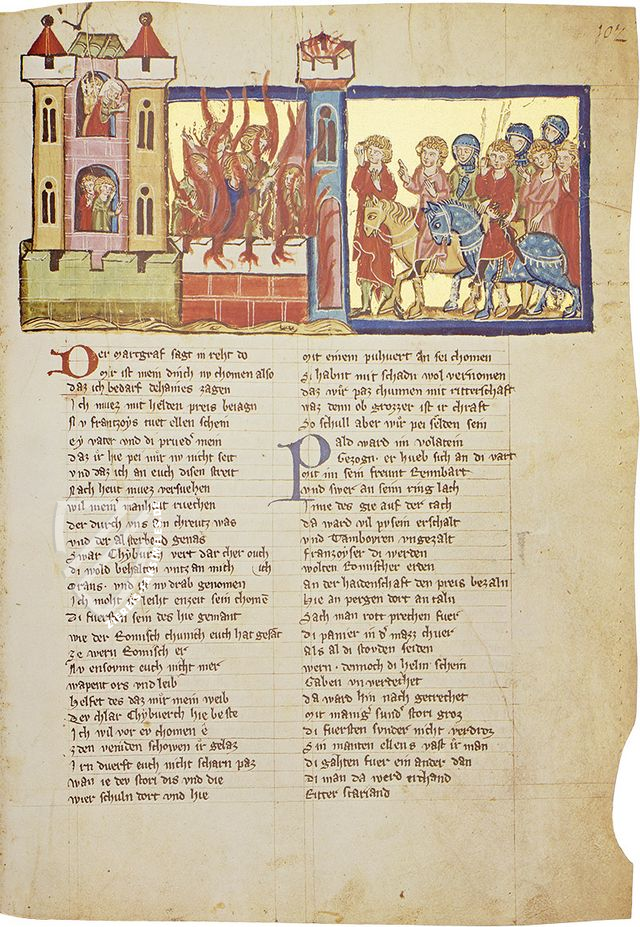 102
Der Martgraf sagt in reht do
Mir ist mein dinch nv chomen also
daz ich bedarf dehaines zagen
Ich muez mit helden preis beiagn
Nv frantzoys tuet ellen schein
ey vater vnd di prued mein
daz ir hie pei mir nv nicht seit
vnd daz ich an euch disen streit
Nach heut muez versuehen
wil mein manhait ruechen
der durch vns ein chreutz was
vnd der al sterbend genas
Swar Chyburch vert dar cher ouch
di wold behalten vntz an mich ich
Trans vnd ist nv drab genomen
Ich moht leiht enzeit sein chomen
Di fuersten sein des hie gemant
wie der Romisch chunich euch hat gesat
ze wern Romisch er
Nv ensoumt euch nicht mer
wapent ors vnd leib
helfet des daz mir mein weib
Dev chlar Chyburch hie beste
Ich wil vor ev chomen e
zden veniden schowen ir gelaz
Irn duerft euch nicht scharn paz
wan ie dev stori dis vnd die
wier schuln dort vnd hie
mit einem puhvert an sei chomen
Si habnt mit schadn wol vernomen
daz wir paz chumen mit ritterschaft
waz denn ob grozzer ist ir chraft
So schull aber wir pei selden sein
Pald ward im volatein
Gezogn er hueb sich an di vart
mit im sein freunt Rennbart
vnd swer an sein ring lach
Inne des gie auf der tach
da ward vil pusein erschalt
vnd Tamboyren vngezalt
Franzoyser di werden
wolten Romischer erden
an der haidenschaft den preis bezaln
hie an pergen dort an taln
Sach man rott prechen fuer
di panier in der mazz chuer
als al di stouden seiden
wern dennoch di helm schein
Gaben vnverdechet
da ward hin nach getrechet
mit manig sund stori groz
di fuersten sunder nicht verdroz
Sin manten ellens vast ir man
di gahten fuer ein ander dan
di man da werd erchand
Ritter Sariand